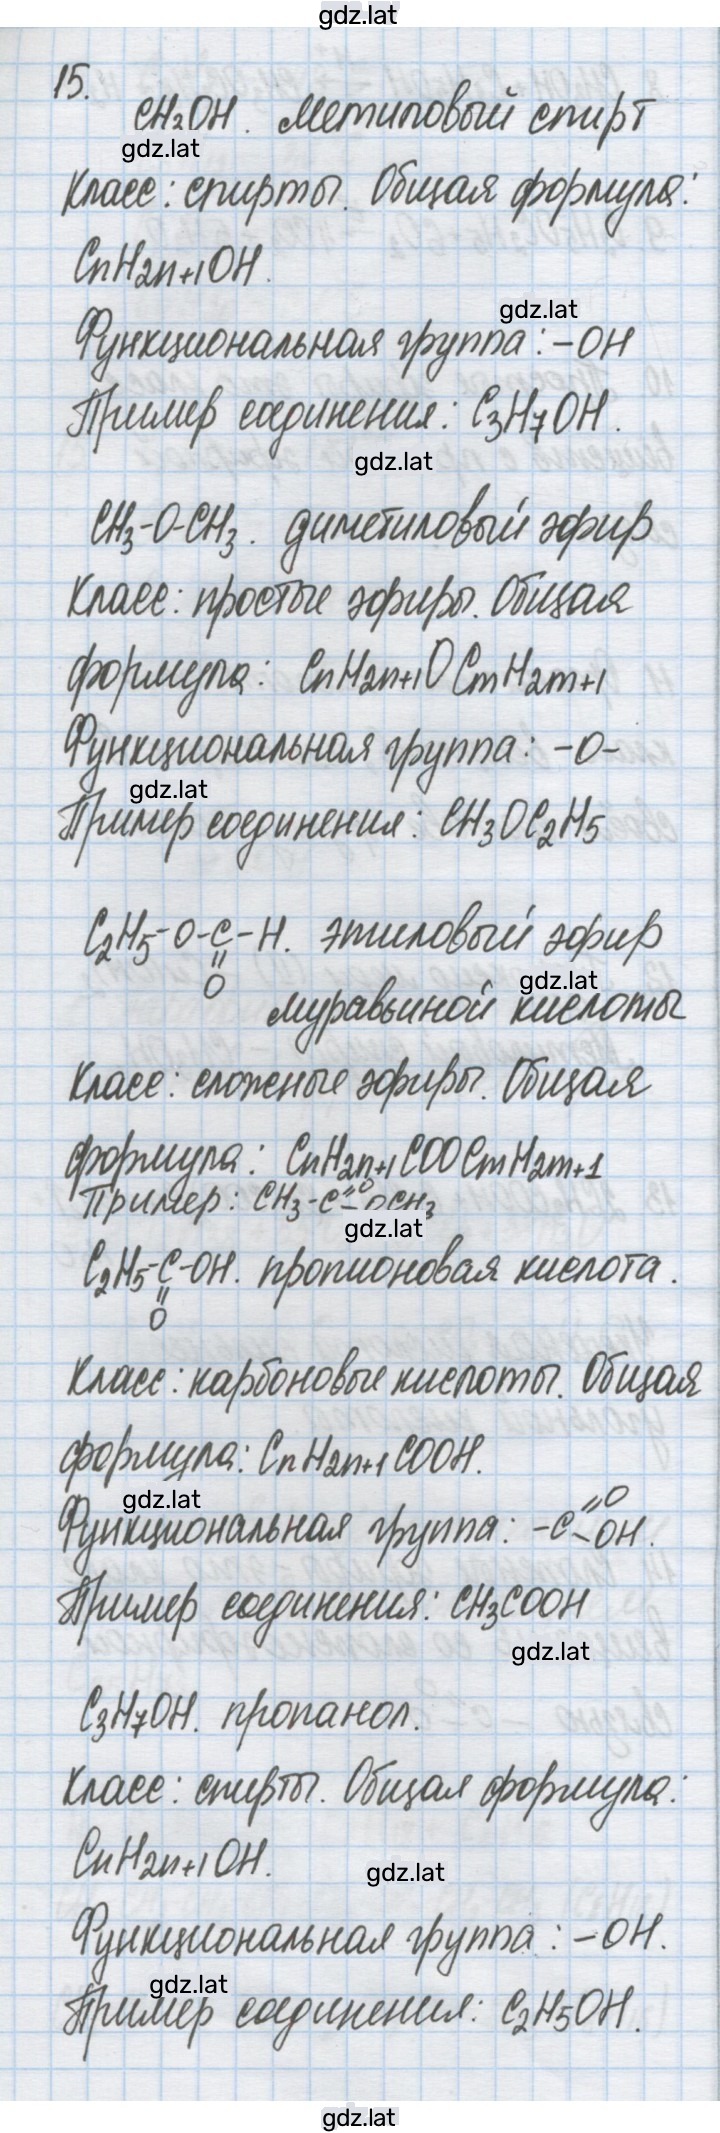 gdz.lat
15.
CH3OH. метиловый спирт
gdz.lat
Класс: спирты. Общая формула:
CnH2n+1OH.
gdz.lat
Функциональная группа: -OH
Пример соединения: C3H7OH.
gdz.lat
CH3-O-CH3. диметиловый эфир
Класс: простые эфиры. Общая
формула: CnH2n+1OCmH2m+1
Функциональная группа: -O-
gdz.lat
Пример соединения: CH3OC2H5
C2H5-O-C-H. этиловый эфир
gdz.lat
=O
муравьиной кислоты
Класс: сложные эфиры. Общая
формула: CnH2n+1COOCmH2m+1
Пример: CH3-C=O-OCH3
gdz.lat
C2H5-C-OH. пропионовая кислота.
=O
Класс: карбоновые кислоты. Общая
формула: CnH2n+1COOH.
gdz.lat
Функциональная группа: -C=O-OH.
Пример соединения: CH3COOH
gdz.lat
C3H7OH. пропанол.
Класс: спирты. Общая формула:
CnH2n+1OH.
gdz.lat
Функциональная группа: -OH.
gdz.lat
Пример соединения: C2H5OH.
gdz.lat